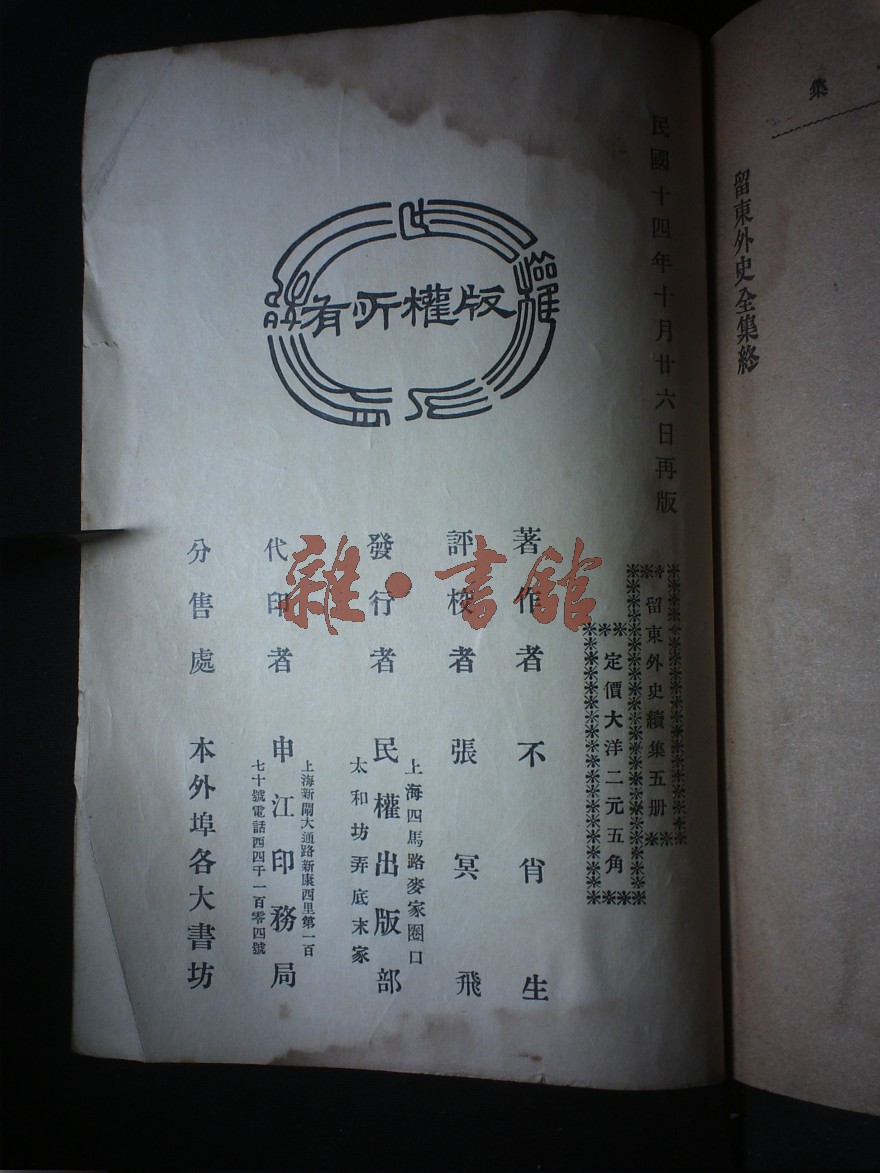 集
留東外史全集終
民國十四年十月廿六日再版
版權所有
留東外史續集五册
定價大洋二元五角
著作者 不肖生
評校者 張冥飛
發行者 民權出版部
上海四馬路麥家圈口
太和坊弄底末家
代印者 申江印務局
上海新閘大通路新康西里第一百
七十號電話西四千一百零四號
分售處 本外埠各大書坊
雜·書館